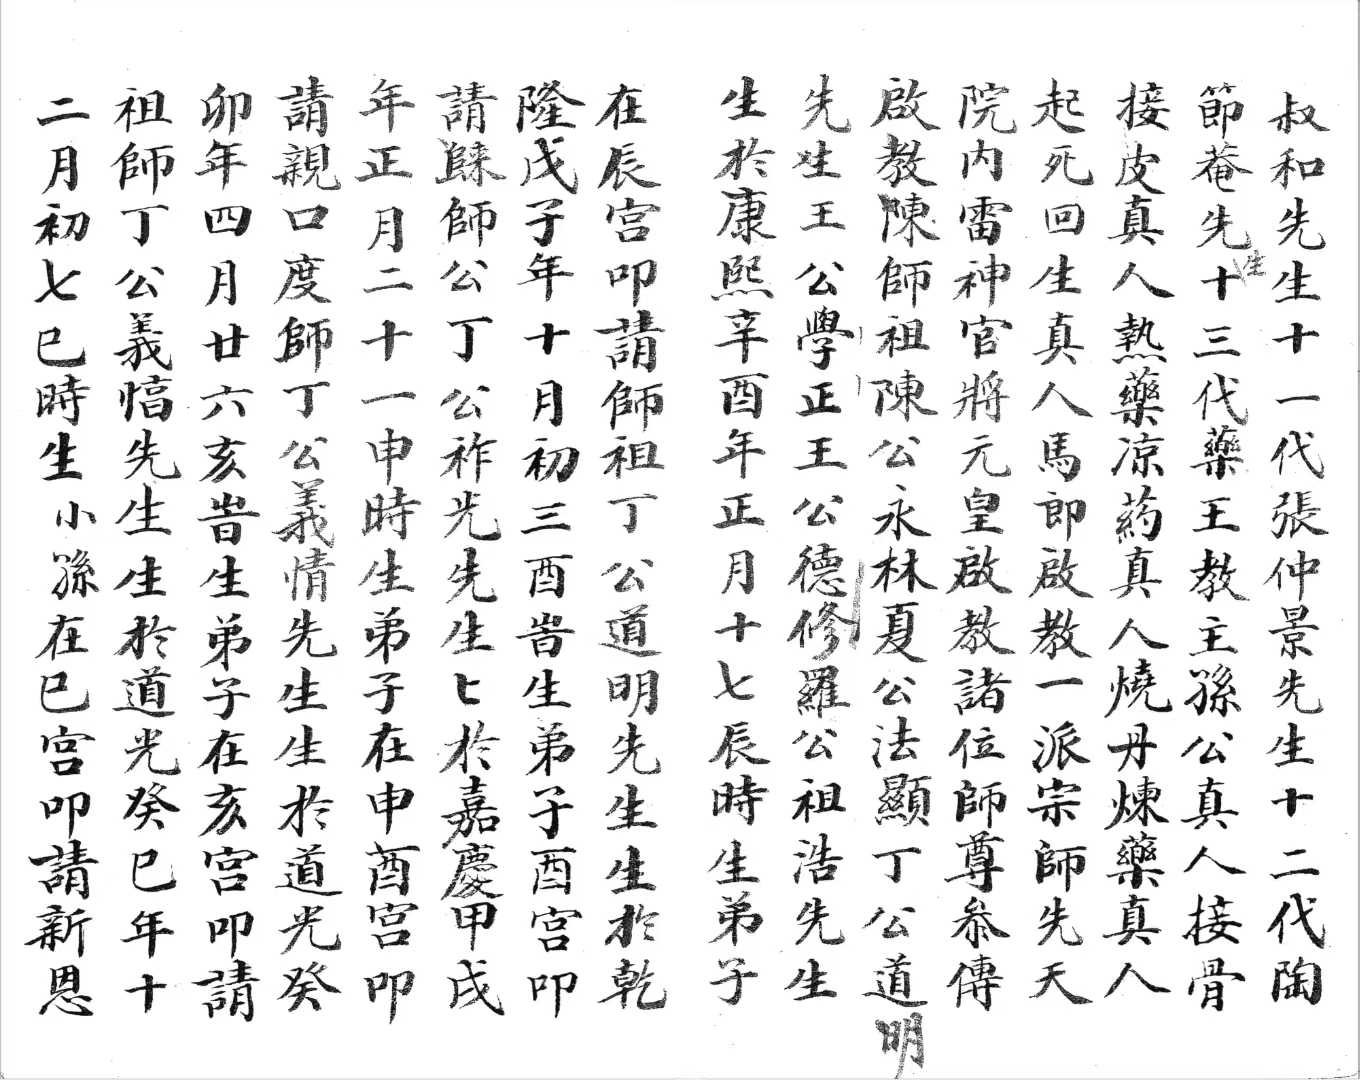 叔和先生十一代張仲景先生十二代陶
節菴先生十三代藥王教主孫公真人接骨
接皮真人熱藥凉药真人燒丹煉藥真人
起死回生真人馬郎啟教一派宗師先天
院内雷神官將元皇啟教諸位師尊叅傳
啟教陳師祖陳公永林夏公法顯丁公道明
先生王公學正王公德修羅公祖浩先生
生於康熙辛酉年正月十七辰時生弟子
在辰宫叩請師祖丁公道明先生生於乾
隆戊子年十月初三酉旹生弟子酉宫叩
請踈師公丁公祚光先生匕於嘉慶甲戌
年正月二十一申時生弟子在申酉宫叩
請親口度師丁公義情先生生於道光癸
卯年四月廿六亥旹生弟子在亥宫叩請
祖師丁公義愊先生生於道光癸巳年十
二月初七巳時生小孫在巳宫叩請新恩